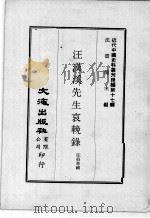 近代中國史料叢刊續編第十七輯
沈雲龍主編
汪漢溪先生哀輓錄
汪伯奇輯
文海出版社有限公司印行